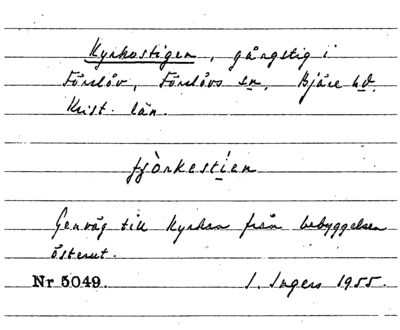 Kyrkostigen, gångstig i
Förslöv, Förslövs sn, Bjäre hd.
Krist. län.
çòrkestien
Genväg till kyrkan från bebyggelsen
österut.
Nr 5049. I. Ingers 1955.